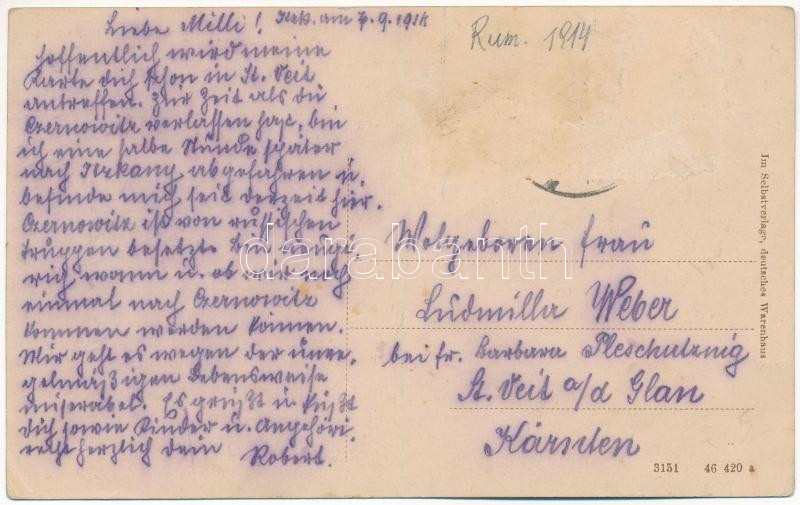 Liebe Milli! Itzk. am 7.9.1914
Hoffentlich wird meine
Karte dich schon in St. Veit
antreffen. Zur Zeit als du
Czernowitz verlassen hast, bin
ich eine halbe Stunde später
nach Itzkany abgefahren u.
befinde mich seit derzeit hier.
Czernowitz ist von russischen
Truppen besetzt. Bin neugi-
rich wann u. ob wir noch
einmal nach Czernowitz
kommen werden können.
Mir geht es wegen der unre-
gelmäßigen Lebensweise
miserabel. Es grüßt u. küßt
Dich sowie Kinder u. Angehöri.
recht herzlich dein
Robert.
Rum. 1914
Wolgeboren Frau
Ludmilla Weber
bei Fr. Barbara Pleschutznig
St. Veit a/d Glan
Kärnten
Im Selbstverlage, deutsches Warenhaus
3151 46 420 a
darabanth